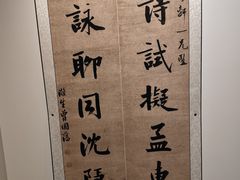 詩試擬孟東
詠聊同沈
滌生曾國藩